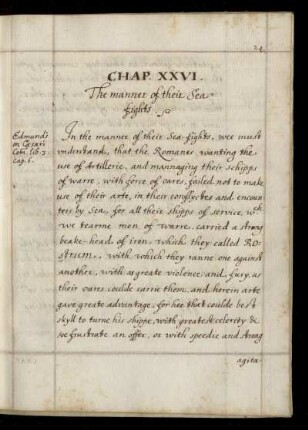 24
CHAP. XXVI.
The manner of their Sea-
fights.
Edmunds
on Cæsars
Com: lib: 3
cap. 6.
In the manner of their Sea-fights, wee must
vnderstand, that the Romanes, wanting the
use of Artillerie, and mannaging their schipps
of warre, with force of oares, failed not to make
use of their arte, in their conflyctes and encoun-
ters by Sea, for all their shipps of service, wch
we tearme men of warre, carried a strong
beake-head of iron, which they called RO-
strum, with which they ranne one against
another, with as greate violence, and fury, as
their oares coulde carrie them, and herein arte
gave greate advantage, for hee that coulde best
skyll to turne his shippe, with greatest celerity &
so frustrate an offer, or with speedie and strong
agita-